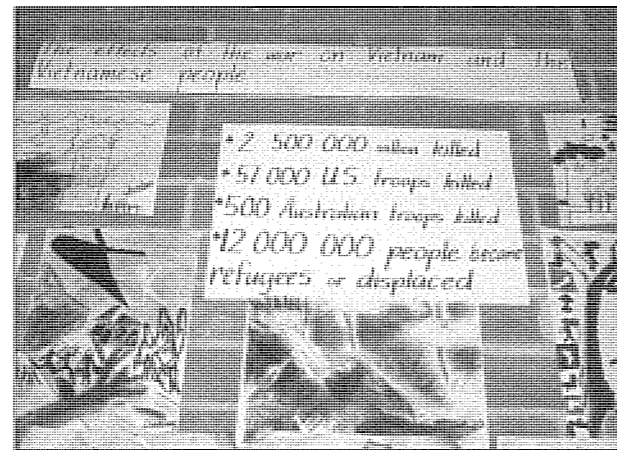 The effects of the war on Vietnam and the
Vietnamese people
*2 500 000 million killed
*57 000 U.S troops killed
*500 Australian troops killed
*12 000 000 people became
refugees or displaced